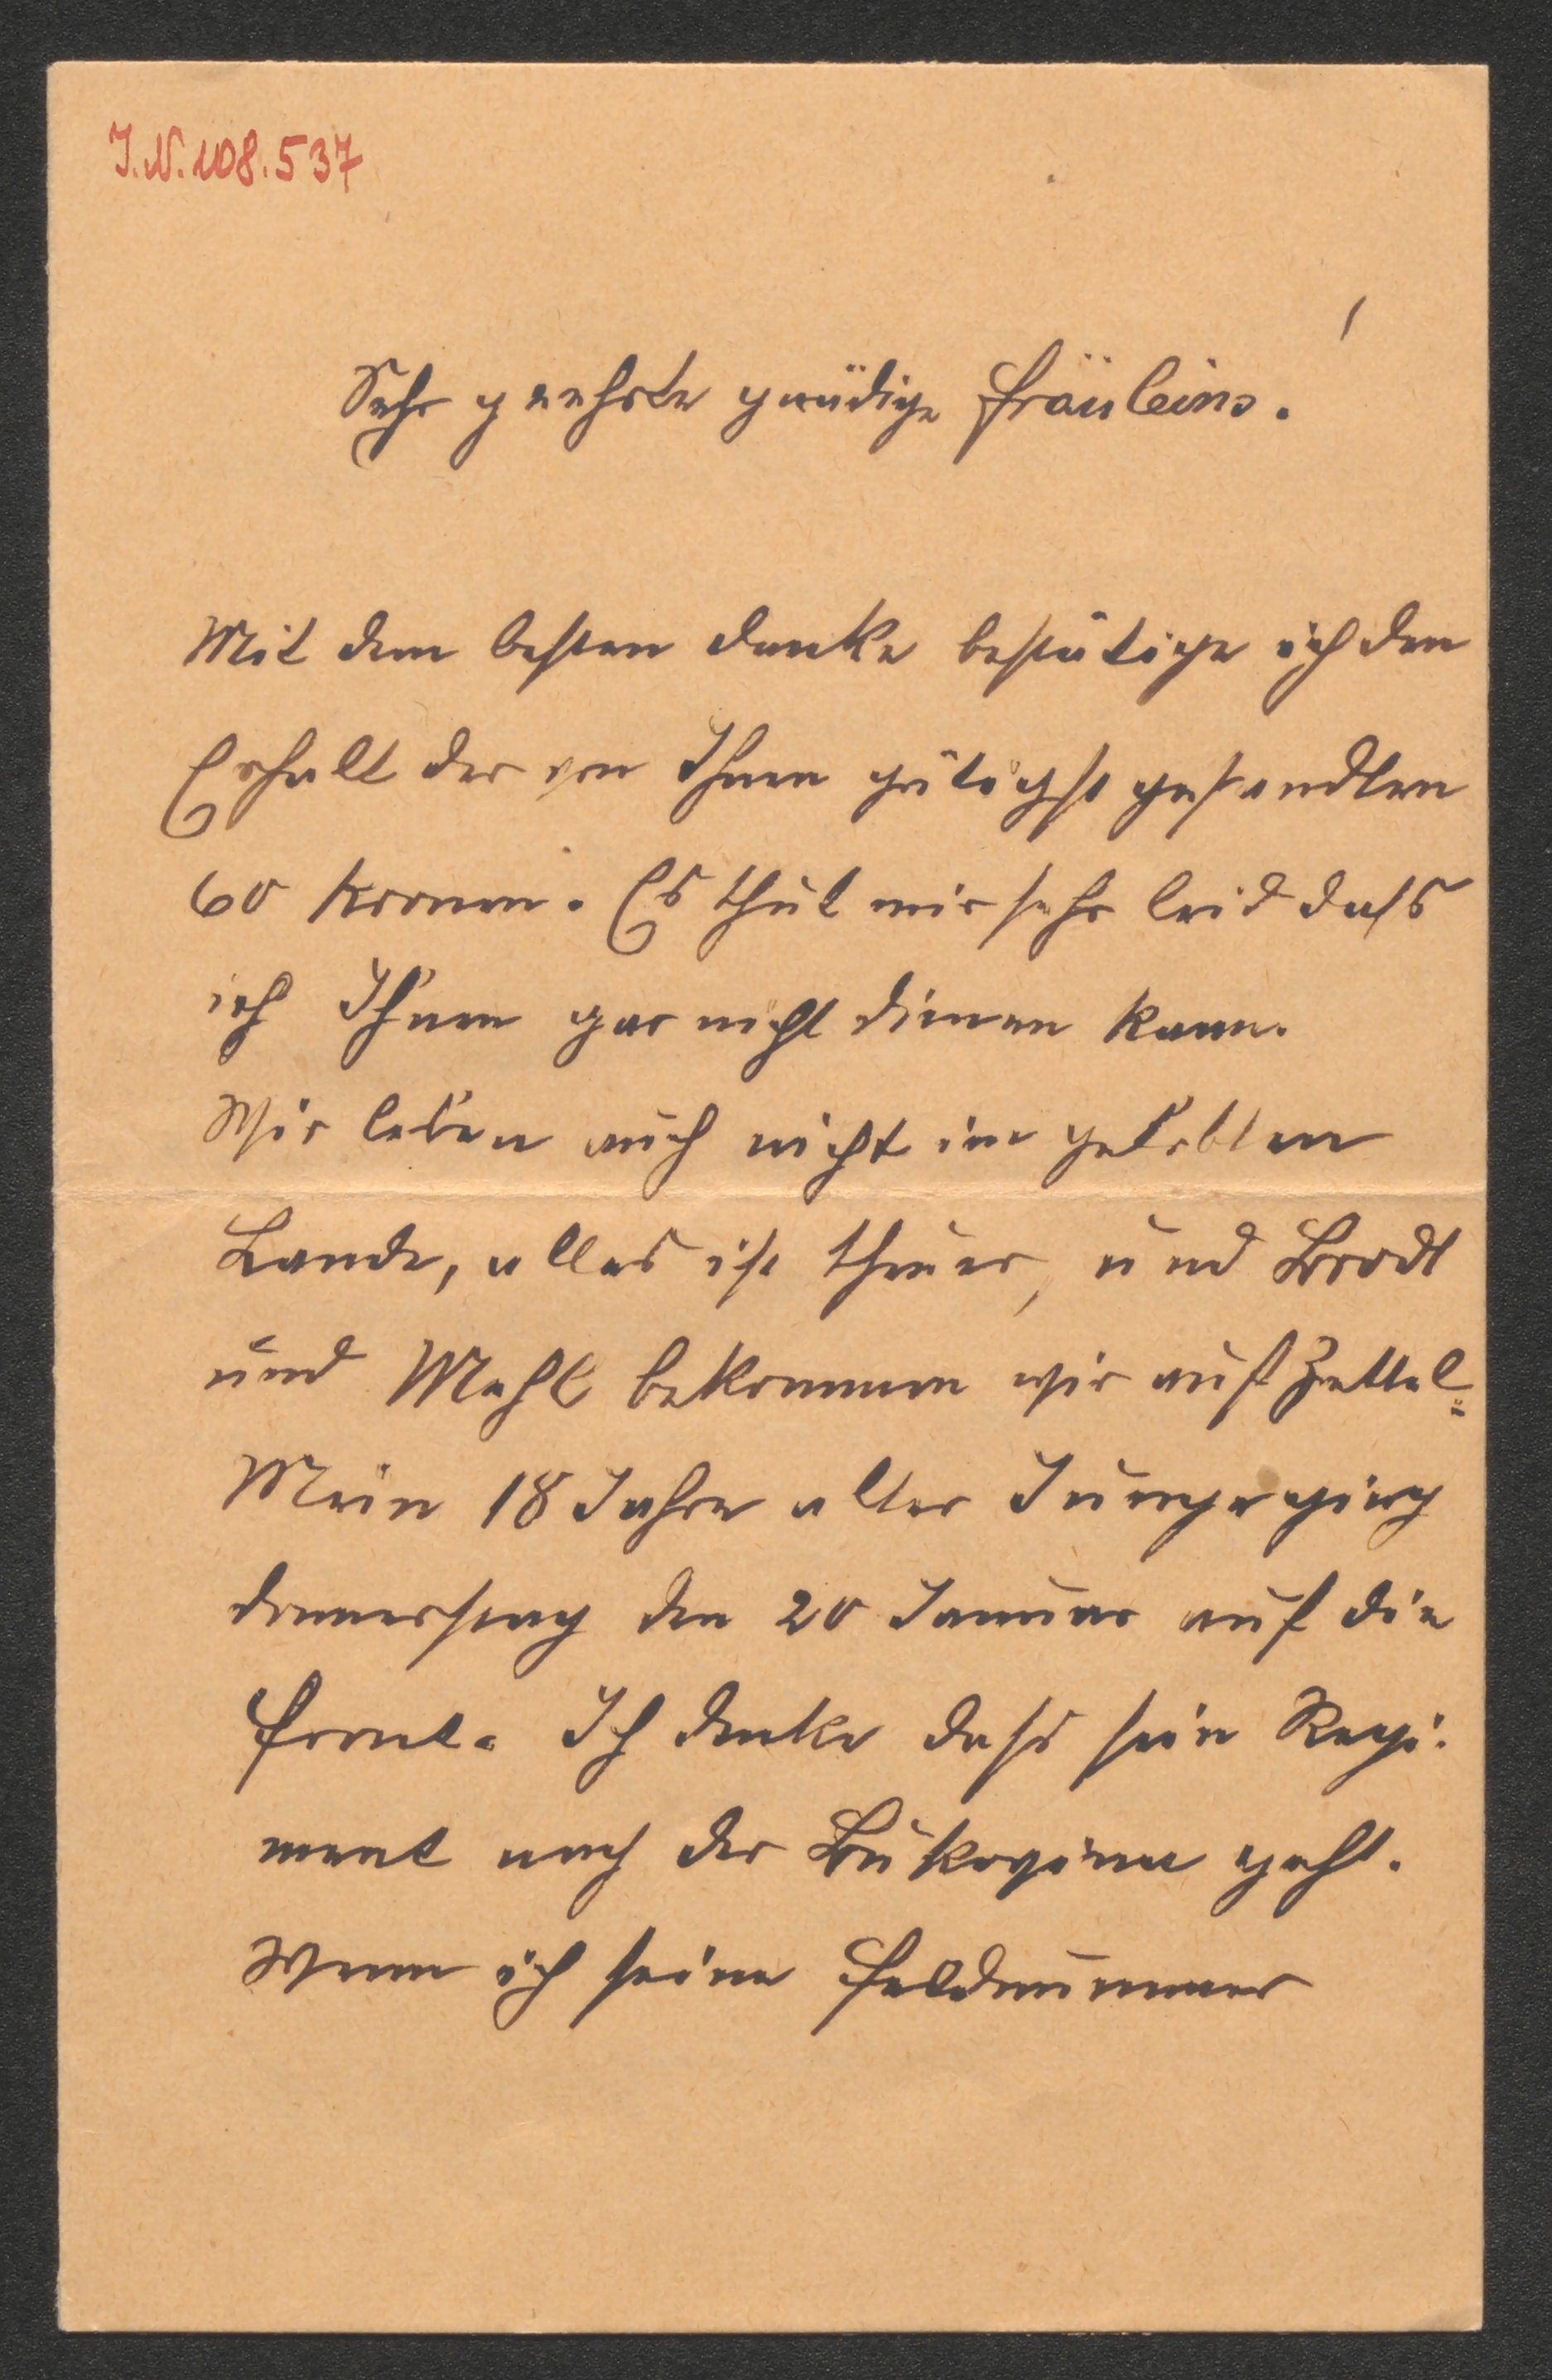 J.N. 108.537
Sehr geehrte gnädige Fräuleins!
Mit dem besten Danke bestätige ich den
Erhalt der von Ihnen gütigst gesandten
60 Kronen. Es thut mir sehr leid dass
ich Ihnen gar nicht dienen kann.
Wir leben auch nicht im gelobten
Lande, alles ist theuer, und Brodt
und Mehl bekommen wir auf Zettel.
Mein 18 Jahre alter Junge ging
Donnerstag den 20 Januar auf die
Front. Ich denke dass sein Regi-
ment nach der Bukovina geht.
Wenn ich seine Feldnummer